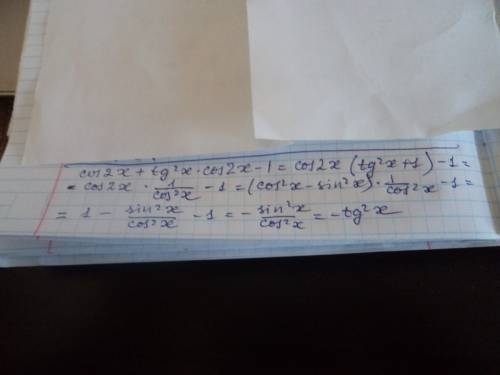 cos2x + tg²x · cos2x - 1 = cos2x (tg²x + 1) - 1 =
= cos2x · 1/cos²x - 1 = (cos²x - sin²x) · 1/cos²x - 1 =
= 1 - sin²x/cos²x - 1 = - sin²x/cos²x = - tg²x